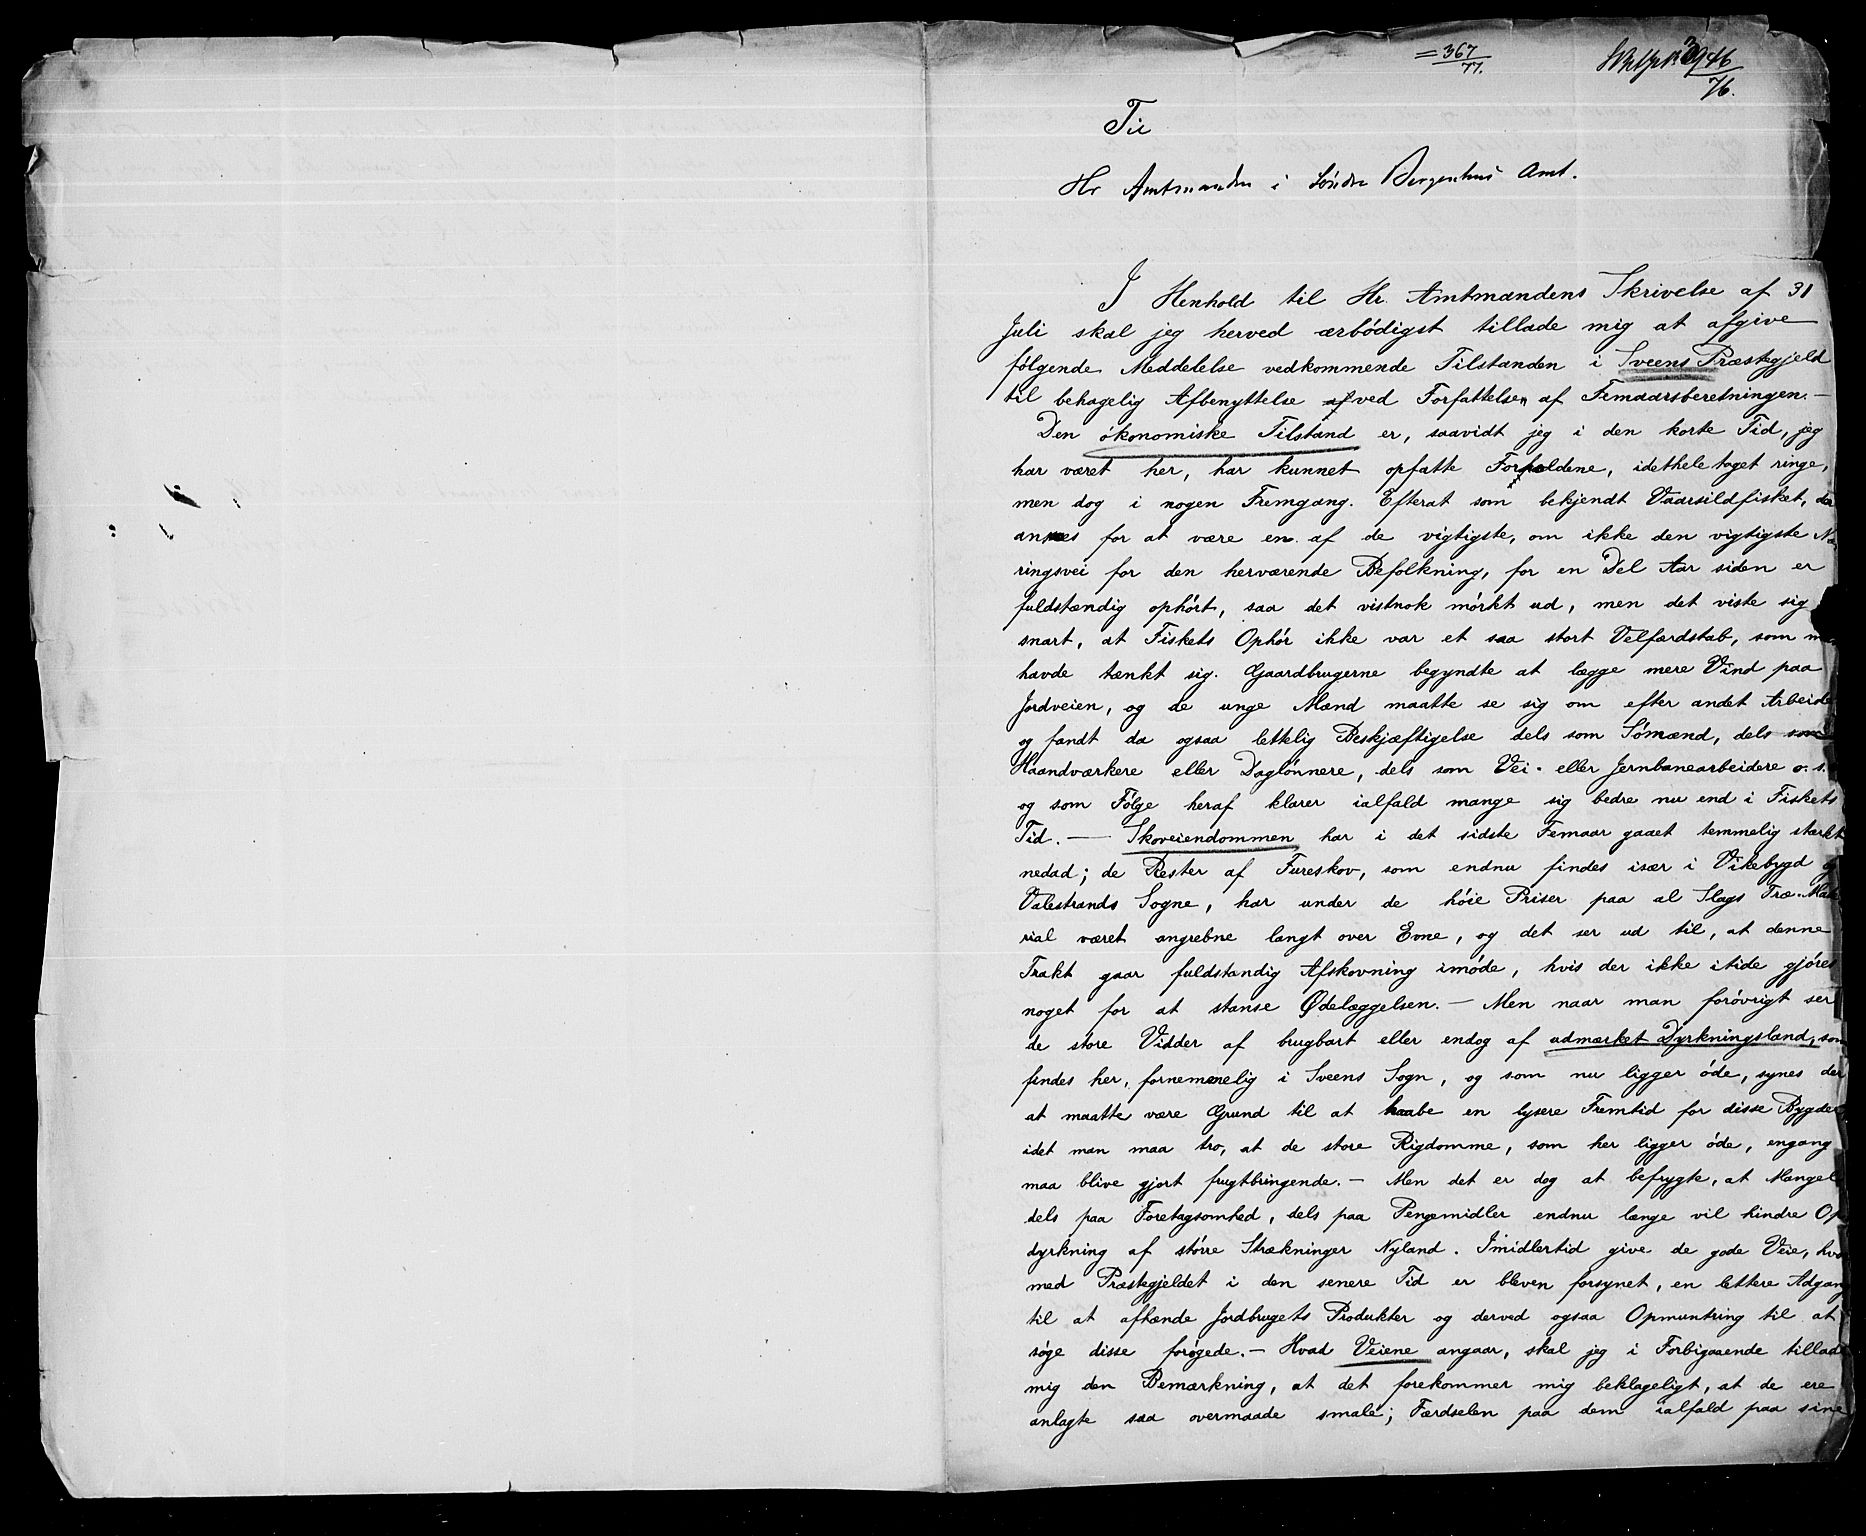 = 367/77.
3946/76.
Til
Hr Amtmanden i Söndre Bergenhus Amt.
I Henhold til Hr. Amtmandens Skrivelse af 31
Juli skal jeg herved ærbödigst tillade mig at afgive
fölgende Meddelelse vedkommende Tilstanden i Sveens Præstegjeld
til behagelig Afbenyttelse af ved Forfattelsen af Femaarsberetningen. —
Den ökonomiske Tilstand er, saavidt jeg i den korte Tid, jeg
har været her, har kunnet opfatte Forholdene, idethele taget ringe,
men dog i nogen Fremgang. Efterat som bekjendt Vaarsildfisket, der
ansees for at være en af de vigtigste, om ikke den vigtigste Næ
ringsvei for den herværende Befolkning, for en Del Aar siden er
fuldstændig ophört, saa det vistnok mörkt ud, men det viste sig
snart, at Fiskets Ophör ikke var et saa stort Velfærdstab, som
havde tænkt sig. Gaardbrugerne begyndte at lægge mere Vind paa
Jordveien, og de unge Mænd maatte se sig om efter andet Arbeide
og fandt da ogsaa lettelig Beskjæftigelse dels som Sömænd, dels som
Haandværkere eller Daglönnere, dels som Vei- eller Jernbanearbeidere o. s.
og som Fölge heraf klarer ialfald mange sig bedre nu end i Fiskets
Tid. — Skoveiendommen har i det sidste Femaar gaaet temmelig stærkt
nedad; de Rester af Fureskov, som endnu findes især i Vikebygd og
Valestrands Sogne, har under de höie Priser paa al Slags Træ-Mate
rial været angrebne langt over Evne, og det ser ud til, at denne
Trakt gaar fuldstændig Afskovning imöde, hvis der ikke itide gjöres
noget for at stanse Ødelæggelsen. — Men naar man forövrigt ser
de store Vidder af brugbart eller endog af udmærket Dyrkningsland, som
findes her, fornemmelig i Sveens Sogn, og som nu ligger öde, synes der
at maatte være Grund til at haabe en lysere Fremtid for disse Bygder,
idet man maa tro, at de store Rigdomme, som her ligger öde, engang
maa blive gjort frugtbringende. — Men det er dog at befrygte, at Mangel
dels paa Foretagsomhed, dels paa Pengemidler endnu længe vil hindre Op
dyrkning af större Strækninger Nyland. Imidlertid give de gode Veie, hvor
med Præstegjeldet i den senere Tid er bleven forsynet, en lettere Adgang
til at afhænde Jordbrugets Produkter og derved ogsaa Opmuntring til at
söge disse forögede. — Hvad Veiene angaar, skal jeg i Forbigaaende tillade
mig den Bemærkning, at det forekommer mig beklageligt, at de ere
anlagte saa overmaade smale; Færdselen paa dem ialfald paa sine